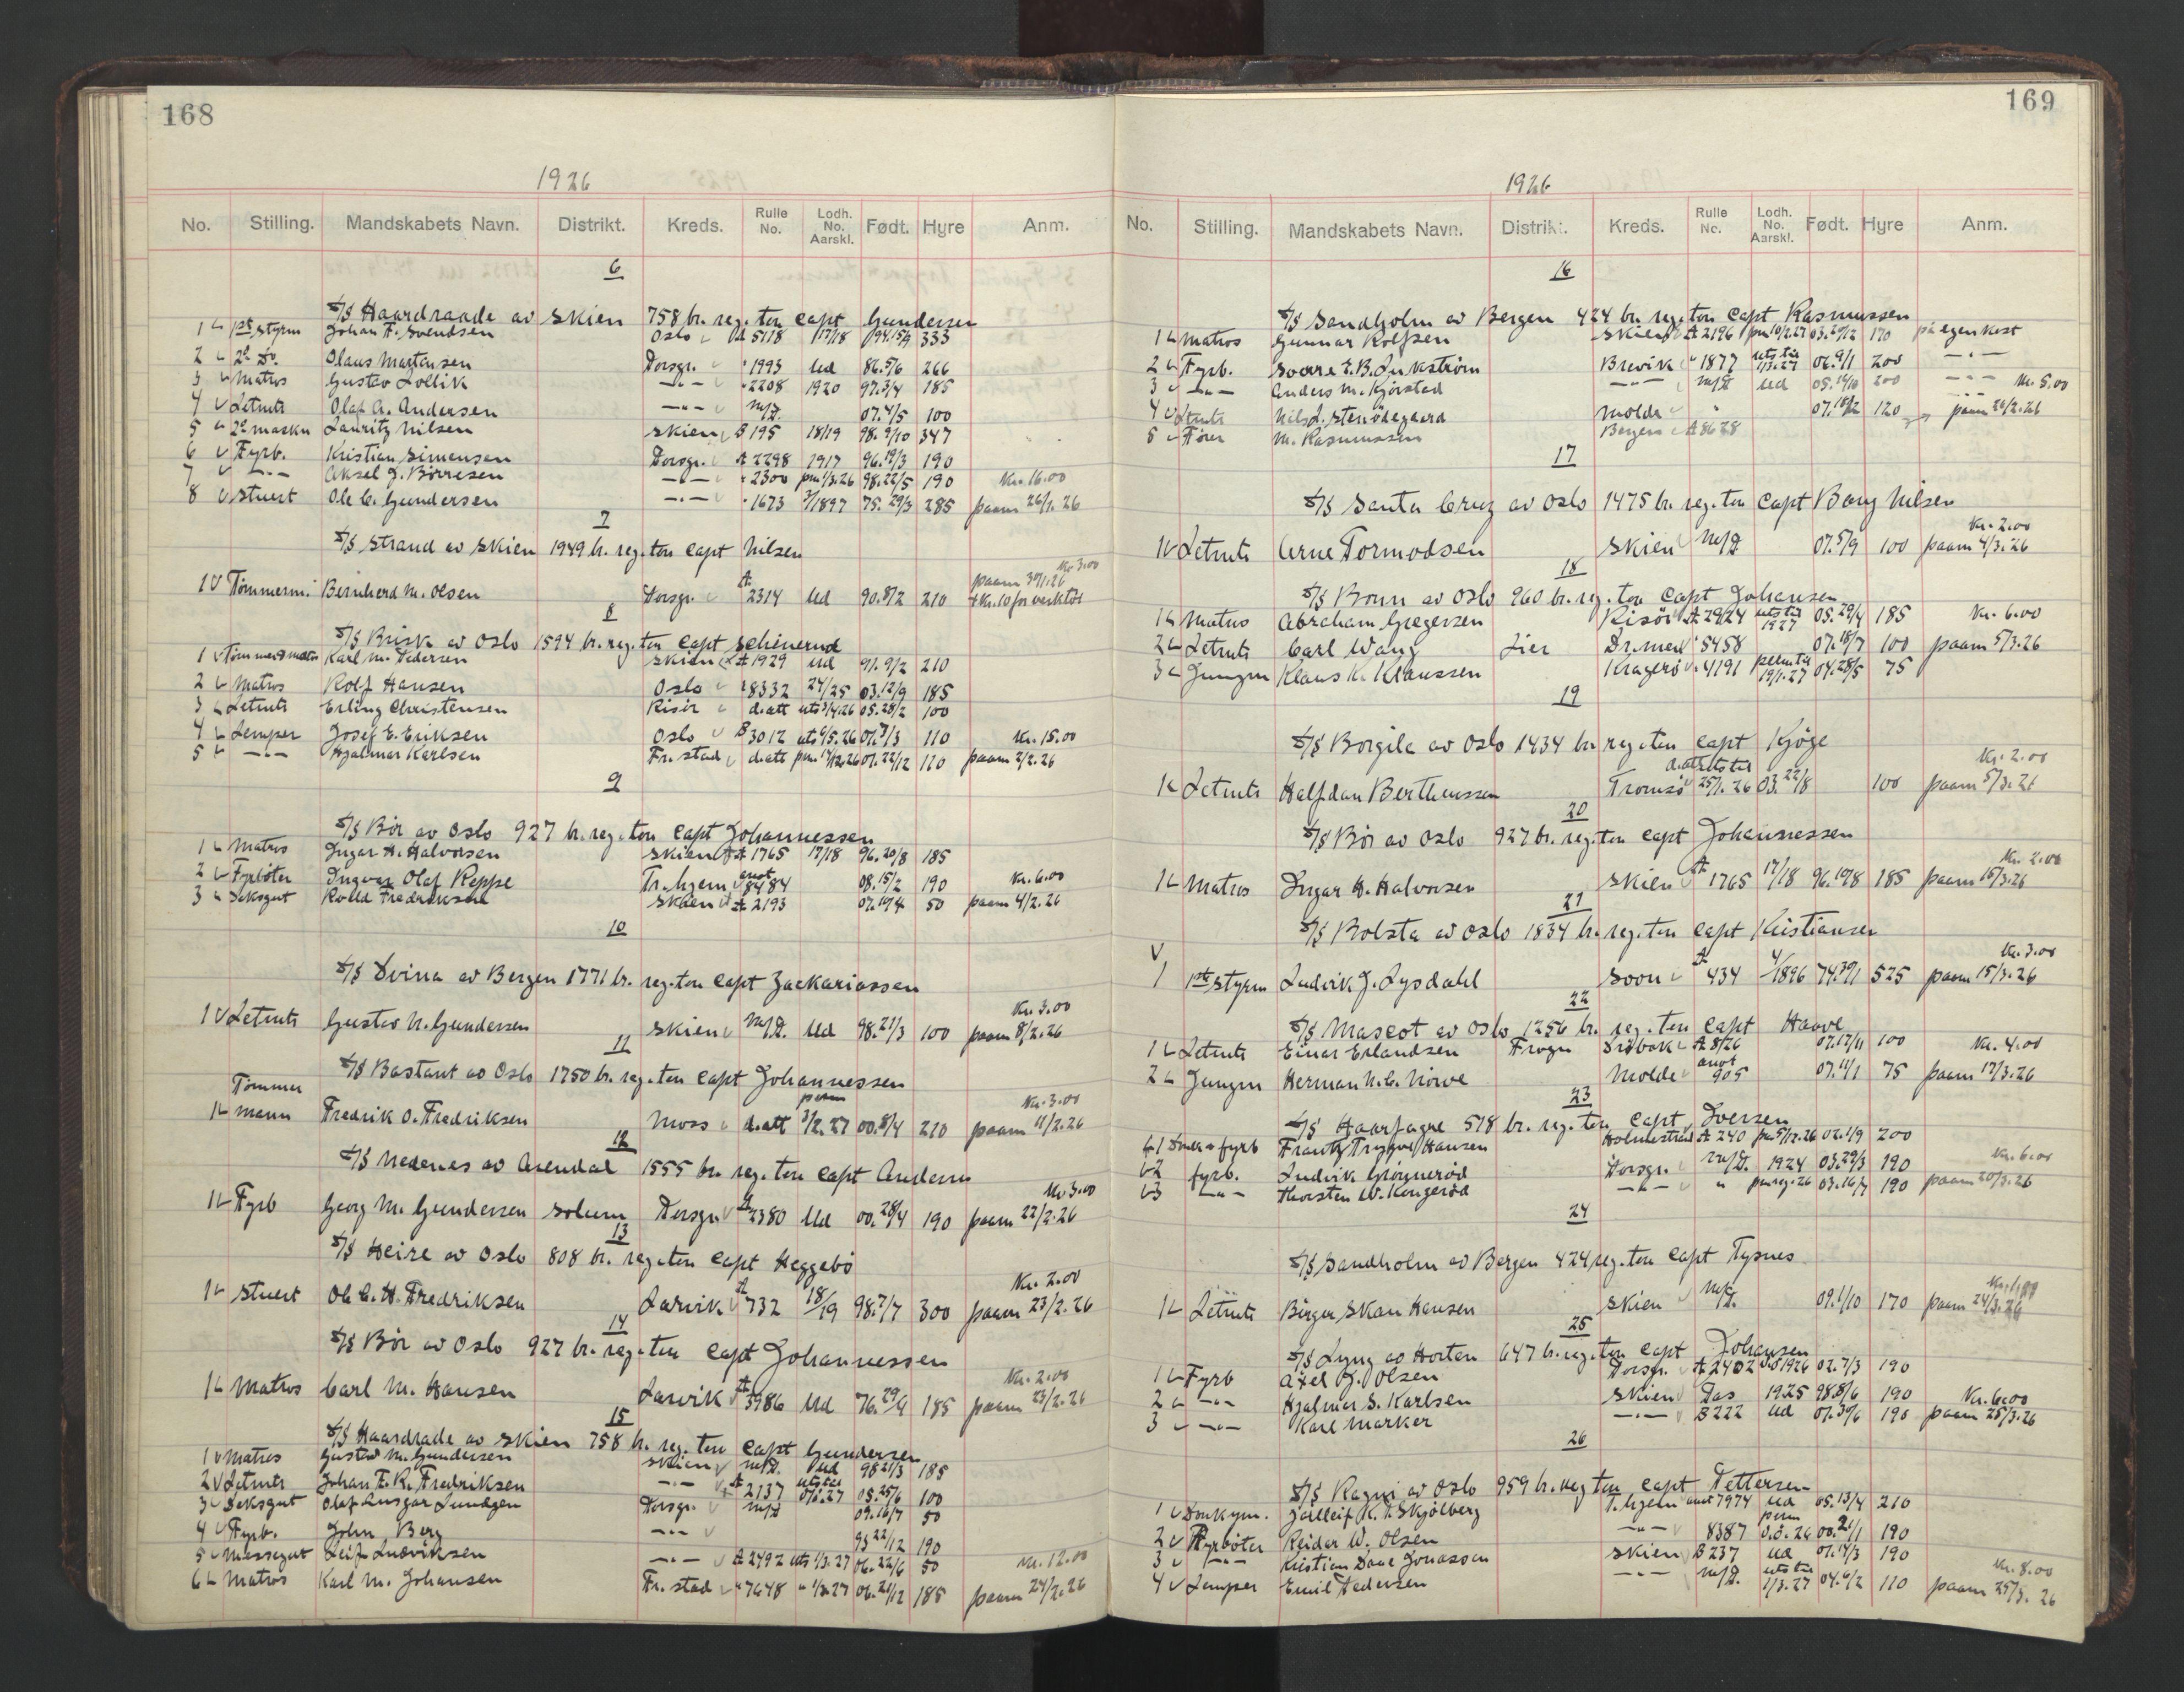 168
1926
No. Stilling. Mandskabets Navn. Distrikt. Kreds. Rulle No. Lodh. No. Aarskl. Født. Hyre Anm.
6
S/S Haardraade av Skien 758 br. reg. ton Capt Gundersen
1 1ste Styrm Johan F. Svendsen Oslo A 5118 17/18 94.15/9 333
2 2n Do. Olaus Martinsen Porsgr. " 1993 Ud 86.5/6 266
3 Matros Gustav Lollik —"— " 2208 1920 97.3/4 185
4 Letmts Olaf A. Andersen —"— m/P. 07.4/5 100
5 2n maskn Lauritz Nilsen Skien B 195 18/19 98.9/10 347
6 Fyrb. Kristian Simensen Porsgr. A 2298 1917 96.19/3 190
7 —"— Aksel J. Børresen —"— " 2300 pm 1/3.26 98.22/5 190 Kr. 16.00
8 Stuert Ole C. Gundersen —"— " 1673 3/1897 75.29/3 285 paam 26/1.26
7
S/S Strand av Skien 1949 br. reg. ton Capt Nilsen
Kr. 3.00
paam 30/1.26
1 Tømmerm. Bernherd M. Olsen Porsgr. A 2314 Ud 90.8/2 210 + Kr. 10 for verktöi
8
S/S Brisk av Oslo 1594 br. reg. ton Capt Schinerud
1 Tømmerm Karl M. Pedersen Skien A 1929 Ud 91.9/2 210
2 Matros Rolf Hansen Oslo " 8332 24/25 03.12/9 185
3 Letmts Erling Christensen Risör d.att uts 1/4.26 05.28/2 100
4 Lemper Josef E. Eriksen Oslo B 3012 uts 1/5.26 07.7/3 110 Kr. 15.00
5 —"— Hjalmar Karlsen Fr.stad d.att pm 14/12.26 07.22/12 110 paam 2/2.26
9
S/S Bör av Oslo 927 br. reg. ton Capt Johannessen
1 Matros Ingar H. Halvorsen Skien A 1765 17/18 96.20/8 185
2 Fyrböter Ingvar Olaf Reppe Tr.hjem anot 8484 08.15/2 190 Kr. 6.00
3 Deksgut Rolld Fredriksen Skien A 2193 07.10/4 50 paam 4/2.26
10
S/S Dvina av Bergen 1771 br. reg. ton Capt Zackariassen
Kr. 3.00
1 Letmts Gustav N. Gundersen Skien m/P. Ud 98.21/3 100 paam 8/2.26
11
S/S Bastant av Oslo 1750 br. reg. ton Capt Johannessen
Tømmer perm Kr. 3.00
1 mann Fredrik O. Fredriksen Moss d.att 3/2.27 00.8/4 210 paam 11/2.26
12
S/S Nedenes av Arendal 1555 br. reg. ton Capt Andersen
Kr. 3.00
1 Fyrb Georg M. Gundersen Solum Porsgr. A 2380 Ud 00.28/4 190 paam 22/2.26
13
S/S Heire av Oslo 808 br. reg. ton Capt Heggebö
Kr. 2.00
1 Stuert Ole C. H. Fredriksen Larvik A 732 18/19 98.7/7 300 paam 23/2.26
14
S/S Bör av Oslo 927 br. reg. ton Capt Johannessen
Kr. 2.00
1 Matros Carl M. Hansen Larvik A 3986 Ud 76.29/9 185 paam 23/2.26
15
S/S Haardrade av Skien 758 br. reg. ton Capt Gundersen
1 Matros Gustav M. Gundersen Skien m/P. Ud 98 21/3 185
2 Letmts Johan F. R. Fredriksen —"— A 2137 uts til 27 05.25/6 100
3 Deksgut Olaf Ansgar Lundgen Porsgr. m/P 09.16/7 50
4 Fyrb. John Berg —"— 93 22/12 190
5 Messegut Leif Ludviksen —"— A 2492 uts 1/3.27 06.22/6 50 Kr. 12.00
6 Matros Karl M. Johansen Fr.stad " 7648 " 1/3.27 06.21/12 185 paam 24/2.26
169
1926
No. Stilling. Mandskabets Navn. Distrikt. Kreds. Rulle No. Lodh. No. Aarskl. Født. Hyre Anm.
16
S/S Sandholm av Bergen 424 br. reg. ton Capt Rasmussen
1 Matros Gunnar Rolfsen Skien A 2196 pm 10/2.27 03.20/12 170 på egen kost
2 Fyrb. Sverre E. B. Junkström Brevik " 1877 uts til 1/3.27 06.9/1 200 —"—
3 —"— Anders M. Kjörstad —"— m/P Ud 05.14/10 200 —"— Kr. 5.00
4 Letmts Nils J. Stenödegaard Molde " 07.18/2 120 paam 26/2.26
5 Förer M. Rasmussen Bergen A 8628
17
S/S Santa Cruz av Oslo 1475 br. reg. ton Capt Borg Nilsen
Kr. 2.00
1 Letmts Arne Tormodsen Skien m/P. 07.5/9 100 paam 4/3.26
18
S/S Bonn av Oslo 960 br. reg. ton Capt Johansen
1 Matros Abraham Gregersen Risör A 2924 uts til 1927 05.29/4 185 Kr. 6.00
2 Letmts Carl Wang Lier Drmen " 5458 07.18/7 100 paam 5/3.26
3 Jungm Klaus K. Klaussen Kragerö " 4191 perm til 19/1.27 04.28/5 75
19
S/S Borgila av Oslo 1434 br reg. ton Capt Kjöge
d.att uts til Kr. 2.00
1 Letmts Halfdan Berthenssen Tromsö 25/1.26 03.22/8 100 paam 5/3.26
20
S/S Bör av Oslo 927 br. reg. ton Capt Johannessen
Kr. 2.00
1 Matros Ingar H. Halvorsen Skien A 1765 17/18 96.10/8 185 paam 15/3.26
21
S/S Bolsta av Oslo 1834 br. reg. ton Capt Kristiansen
Kr. 3.00
1 1ste Styrm Ludvik J. Lysdahl Soon A 434 4/1896 74.30/1 525 paam 15/3.26
22
S/S Mascot av Oslo 1256 br. reg. ton Capt Haave
1 Letmts Einar Erlandsen Frogn Dröbak A 8/26 07.17/11 100 Kr. 4.00
2 Jungm Herman N. C. Norve Molde anot 905 07.11/1 75 paam 17/3.26
23
S/S Haarfagre 578 br. reg. ton Capt. Iversen
1 Donk & fyrb Frantz Trygve Hansen Holmestrad A 240 pm 5/12.26 02.1/9 200
2 fyrb. Ludvik Grögneröd Porsgr. m/P. 1924 03.29/3 190 Kr. 6.00
3 —"— Thorsten W. Kongeröd —"— " 03.16/7 190 paam 20/3.26
24
S/S Sandholm av Bergen 424 reg. ton Capt Tysnes
1 Letmts Birger Skau Hansen Skien m/P. 09.1/10 170 paam 24/3.26
25
S/S Lyng av Horten 647 br. reg. ton Capt Johansen
1 Fyrb Axel G. Olsen Porsgr. A 2402 1926 02.7/3 190
2 —"— Hjalmar S. Karlsen Skien Pas 1925 98.8/6 190 Kr. 6.00
3 —"— Karl Marker —"— B 222 Ud 07.30/6 190 paam 25/3.26
26
S/S Ragni av Oslo 959 br. reg ton Capt Pettersen
1 Donkym. Jolleif K. P. Skjølberg T.hjem anot 7974 Ud 05.13/4 210
2 Fyrböter Reidar W. Olsen —"— 8387 perm 26 00.21/1 190
3 —"— Kristian Dane Jonasson Skien B 237 Ud 07.14/3 190 Kr. 8.00
4 Lemper Emil Pedersen —"— m/P. uts til 1/3.27 04.6/2 110 paam 25/3.26